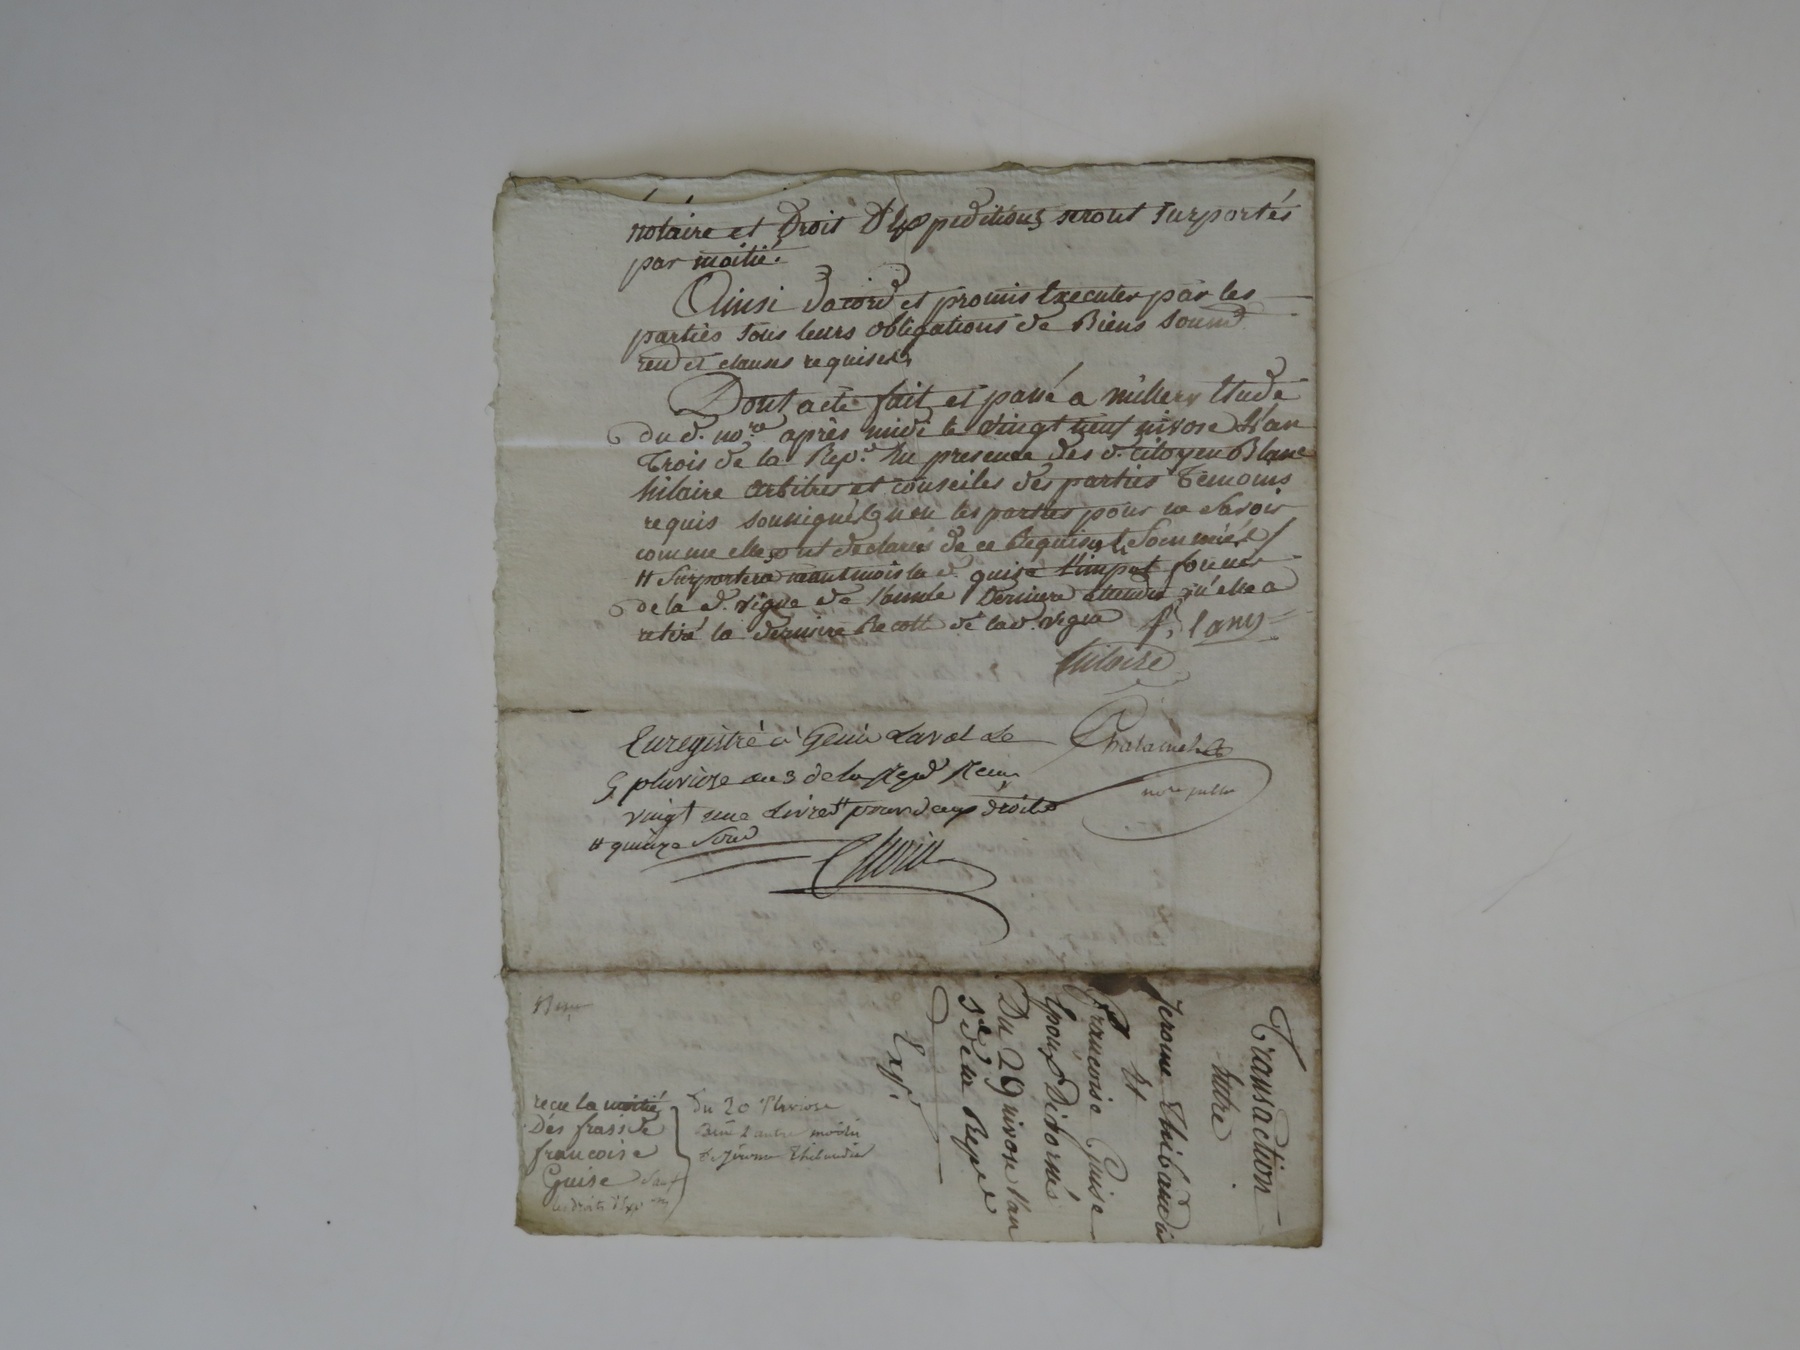 notaire et Droit D'Expeditions seront surportés
par moitié.
Ainsi dacord et promis Executer par les
parties sous leurs obligations de Biens soumi
ren et clauses requises
Dont acte fait et passé a millery Etude
du d. no.re après midi le vingt neuf nivose L'an
Trois de la Rep.e En presence des d. Citoyen Blanc
hilaire arbitres et conseiles des parties Temoins
requis soussignés non les parties pour ne Savoir
comme elles ont declarés de ce Requises & Sommées /
# Surportera neantmois la d. guise l'impot foncier
de la d. vigne de l'année Derniere attendu qu'elle a
retiré la derniere Recolte de lad. vigne
hilaire
Enregistré a Genis Laval Le
5 pluviose an 3 de la Repe Recu
vingt une Livres # pour deux droits
# quinze Sous
not.re public
Transaction
Entre
Jerome Thibaudi
Et
Françoise Guise
Epoux Divorsés
Du 29 nivose l'an
3.e de la Rep.e
Exp.e
recu la moitié
Des frais de
francoise
Guise Sauf
les droits d'Exp.on
Du 20 Pluviose
Recu l'autre moitié
De Jérome Thibaudier